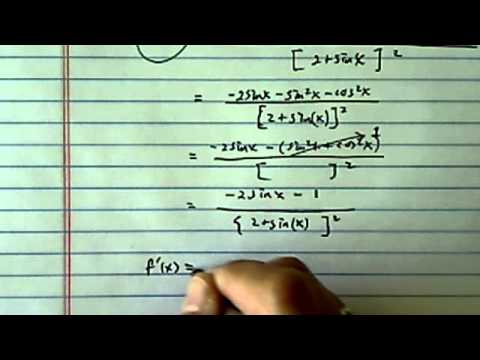 [ 2+sinx ]²
= -2sinx - sin²x - cos²x / [2+sin(x)]²
= -2sinx - (sin²x + cos²x) 1 / [ ]²
= -2sinx - 1 / [ 2+sin(x) ]²
f'(x) =